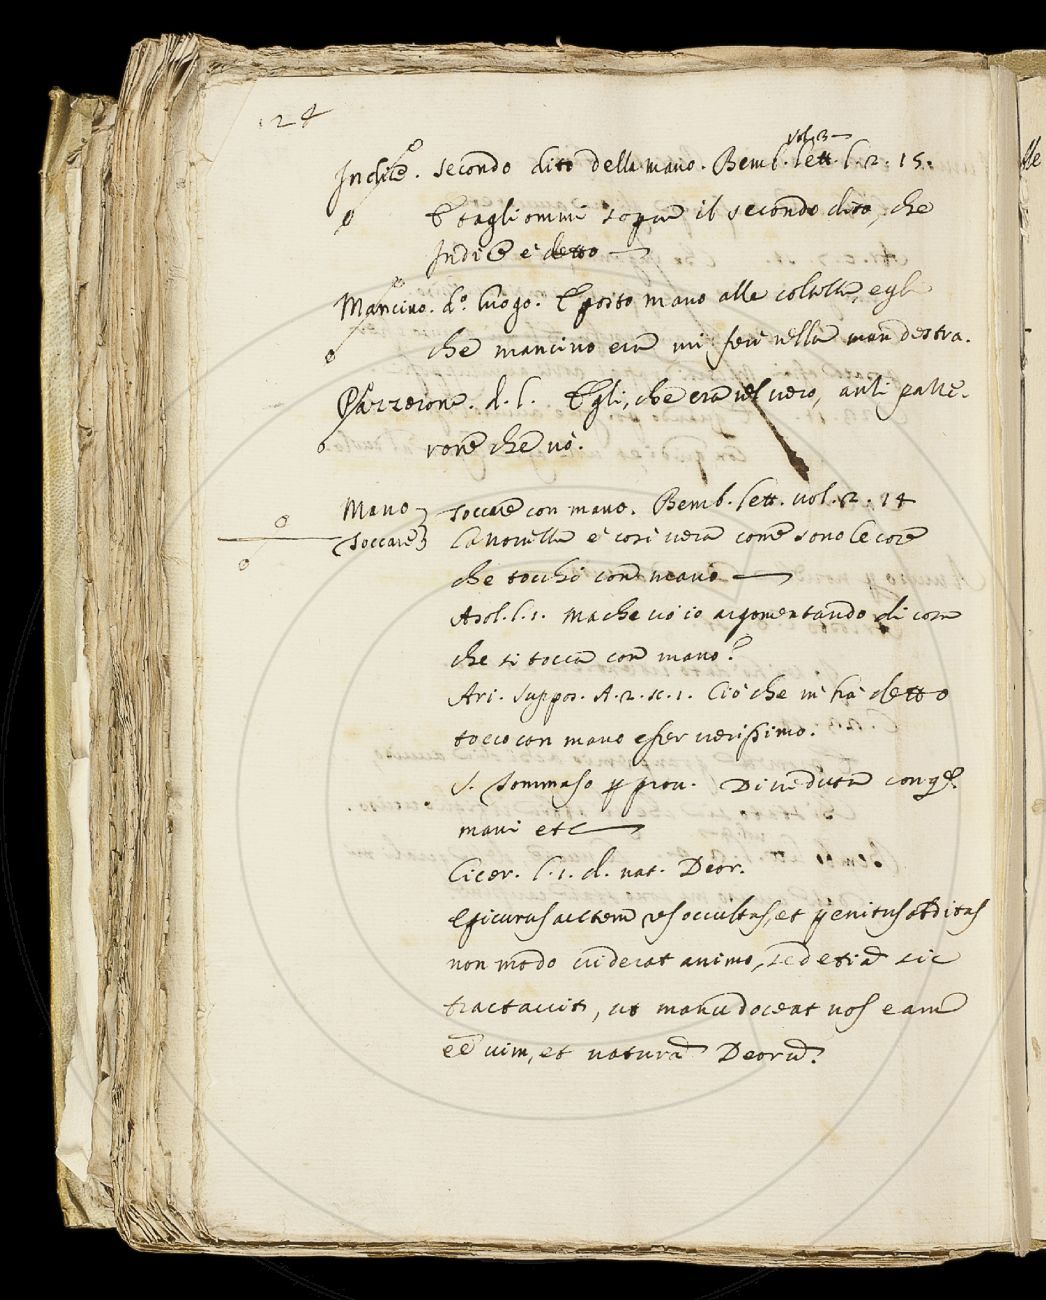 124
Indice. secondo dito della mano. Bemb. lett. vol. 3 l. 2. 15.
E tagliommi sopra il secondo dito, che
Indice è detto
Mancino. d.o luogo. E posto mano alle coltella, egli
che mancino era mi ferì nella man destra.
Pazzerone. d. l. Egli, che era nel vero, anzi pazze-
rone che nò.
Mano } toccare con mano. Bemb. lett. vol. 2. 14
Toccare } La novella è così vera come sono le cose
che tocchi con mano
Asol. l. 1. Ma che vò io argomentando di cosa
che si tocca con mano?
Ari. Suppos. A. 2. sc. 1. Ciò che m'hà detto
tocco con mano esser verissimo.
S. Tommaso p prov. Di veduta con q.e
mani etc
Cicer. l. 1. d. nat. Deor.
Epicurus autem res occultas, et penitus abditas
non modo viderat animo, sed etiã sic
tractavit, ut manu doceat nos eam
eẽ vim, et naturã Deorũ.